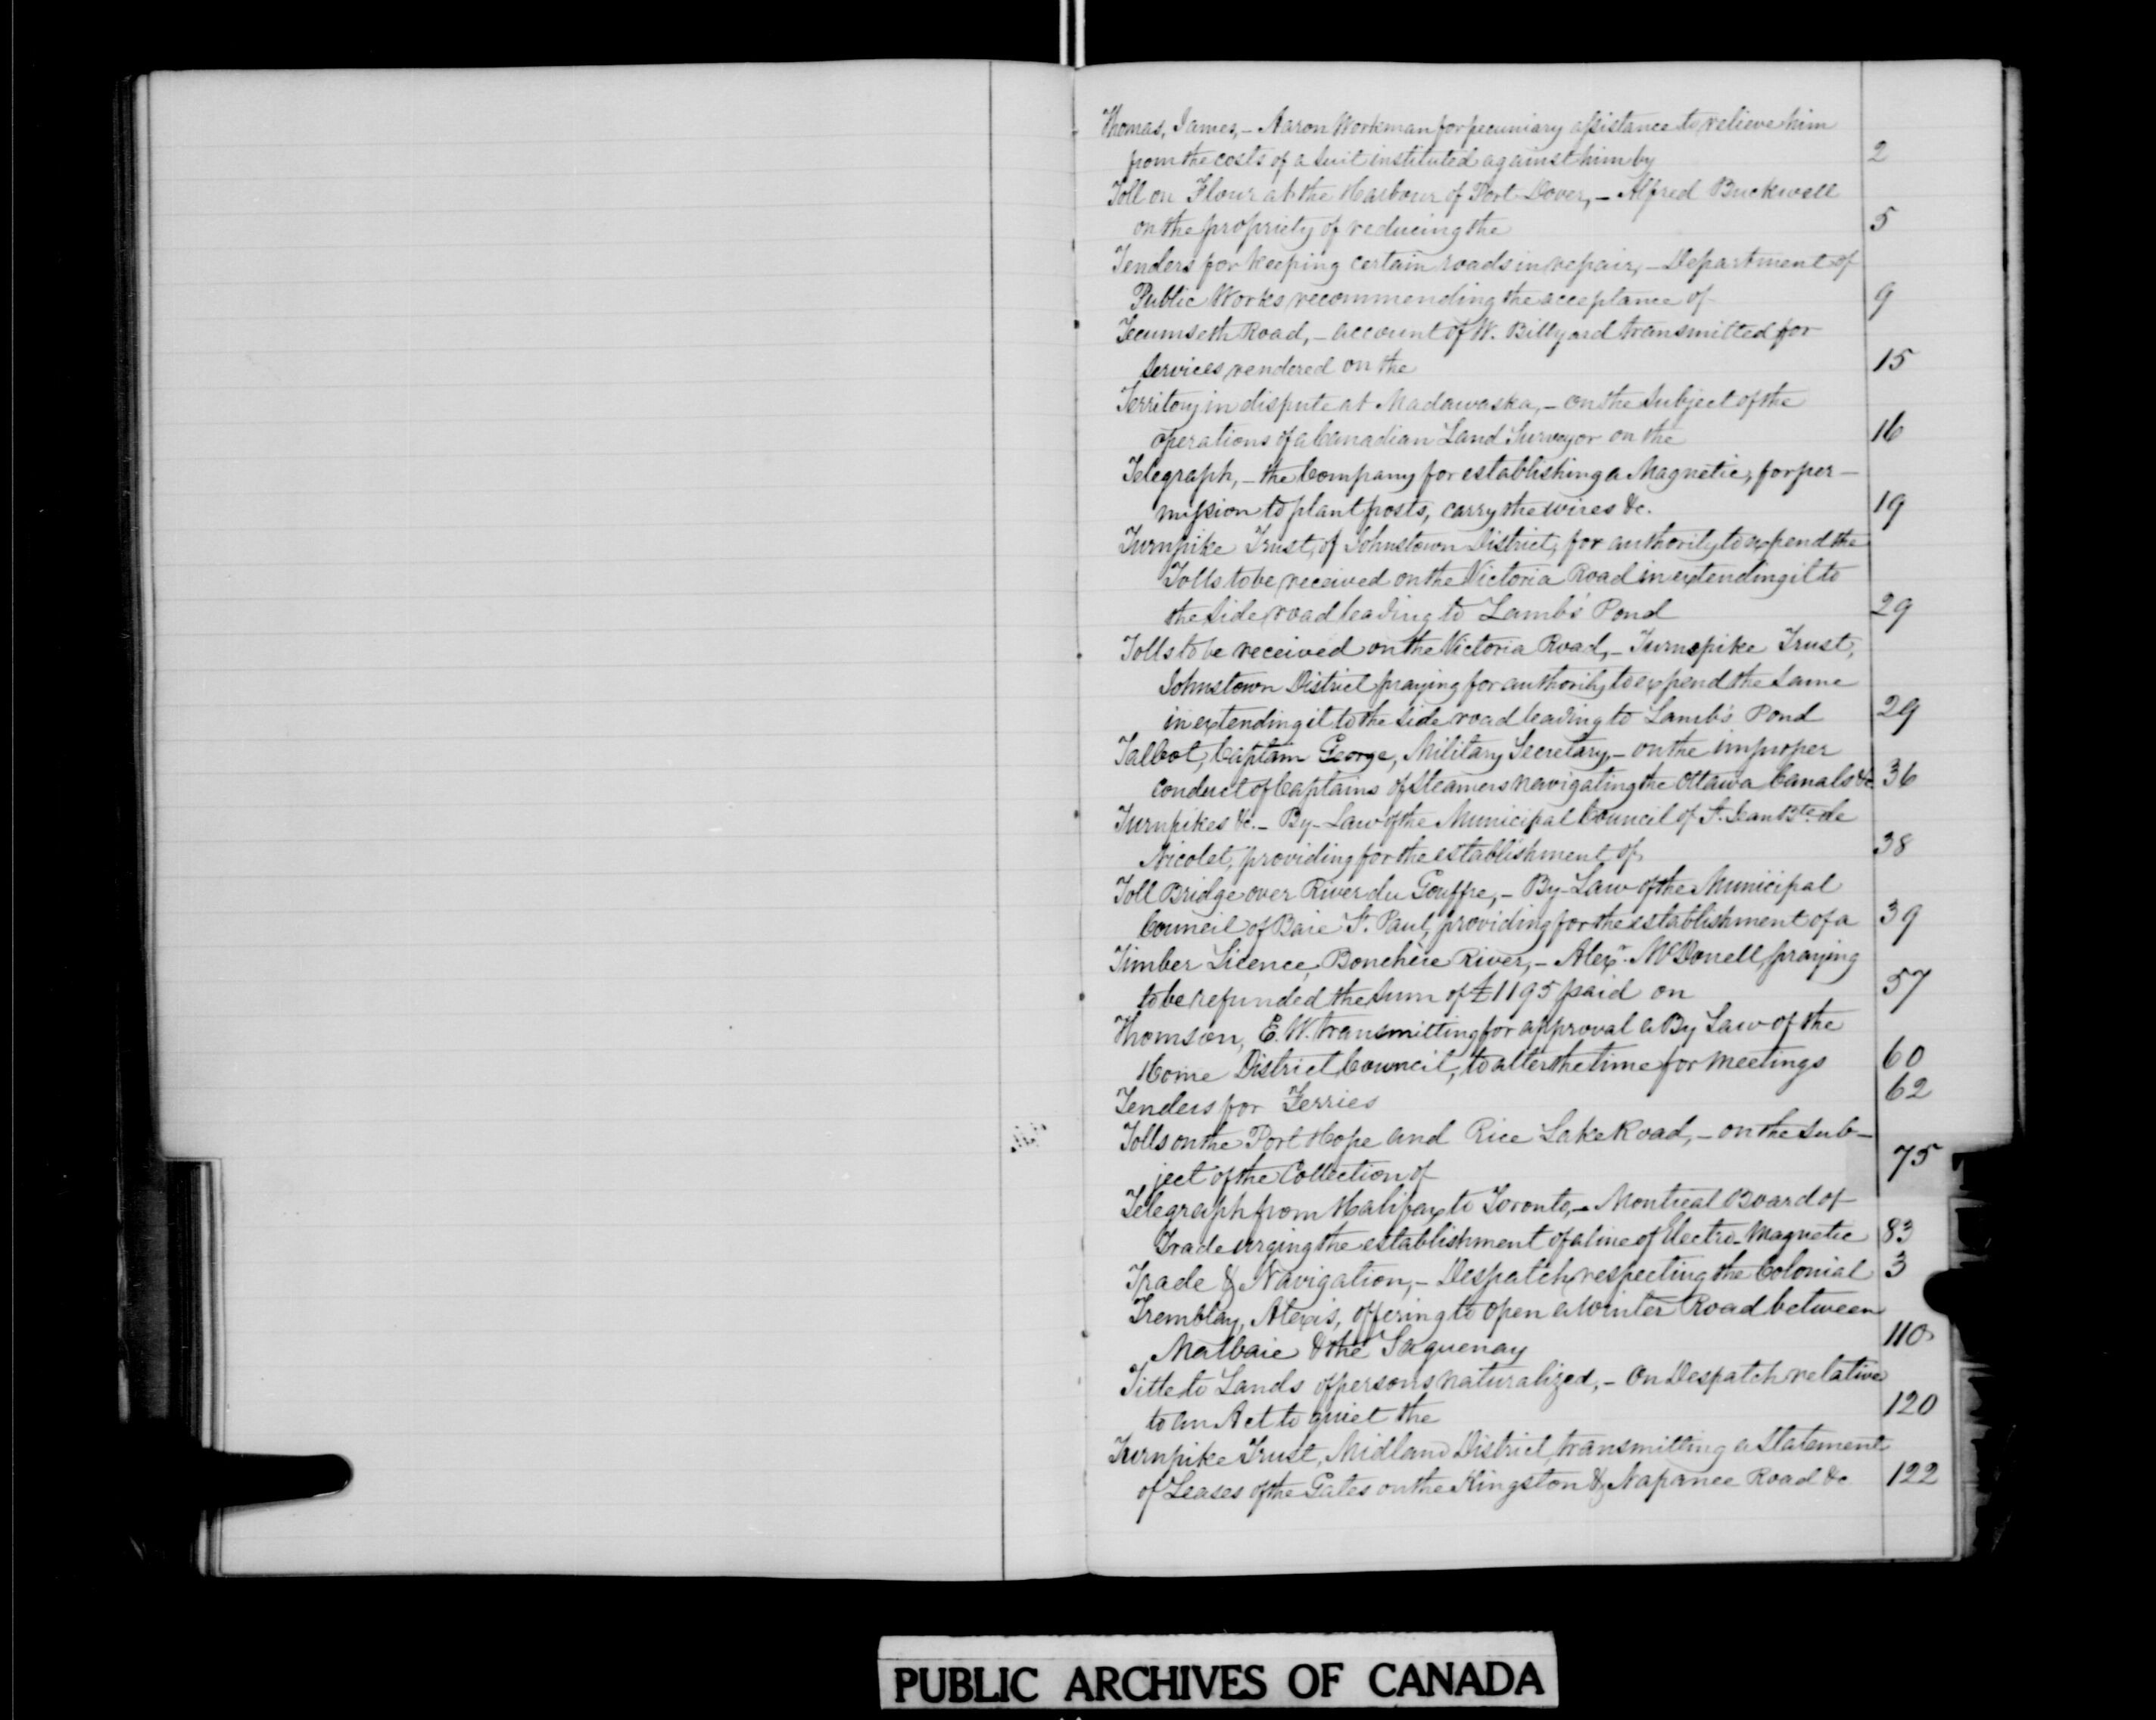 Thomas, James, - Aaron Workman for pecuniary assistance to relieve him
from the costs of a suit instituted against him by 2
Toll on Flour at the Harbour of Port Dover, - Alfred Buckwell
on the propriety of reducing the 5
Tenders for keeping certain roads in repair, - Department of
Public Works recommending the acceptance of 9
Tecumseth Road, - account of W. Billyard transmitted for
services rendered on the 15
Territory in dispute at Madawaska, - on the subject of the
operations of a Canadian Land Surveyor on the 16
Telegraph, - the Company for establishing a Magnetic, for per-
mission to plant posts, carry the wires &c. 19
Turnpike Trust, of Johnstown District, for authority to expend the
Tolls to be received on the Victoria Road in extending it to
the side road leading to Lamb's Pond 29
Tolls to be received on the Victoria Road, - Turnspike Trust,
Johnstown District praying for authority to expend the same
in extending it to the side road leading to Lamb's Pond 29
Talbot, Captain George, Military Secretary, - on the improper
conduct of Captains of Steamers navigating the Ottawa Canals &c 36
Turnpikes &c. - By-Law of the Municipal Council of St. Jean Bte. de
Nicolet, providing for the establishment of 38
Toll Bridge over River du Gouffre, - By-Law of the Municipal
Council of Baie St. Paul, providing for the establishment of a 39
Timber Licence, Bonchère River, - Alexr. McDonell, praying
to be refunded the sum of £1195 paid on 57
Thomson, E. W. transmitting for approval a By Law of the
Home District Council, to alter the time for meetings 60
Tenders for Ferries 62
Tolls on the Port Hope and Rice Lake Road, - on the sub-
ject of the Collection of 75
Telegraph from Halifax to Toronto, - Montreal Board of
Trade urging the establishment of a line of Electro-Magnetic 83
Trade & Navigation, - Despatch respecting the Colonial 3
Tremblay, Alexis, offering to open a Winter Road between
Malbaie & the Saguenay 110
Title to Lands of persons naturalized, - On Despatch relative
to an Act to quiet the 120
Turnpike Trust, Midland District, transmitting a Statement
of Leases of the Gates on the Kingston & Napanee Road &c 122
PUBLIC ARCHIVES OF CANADA